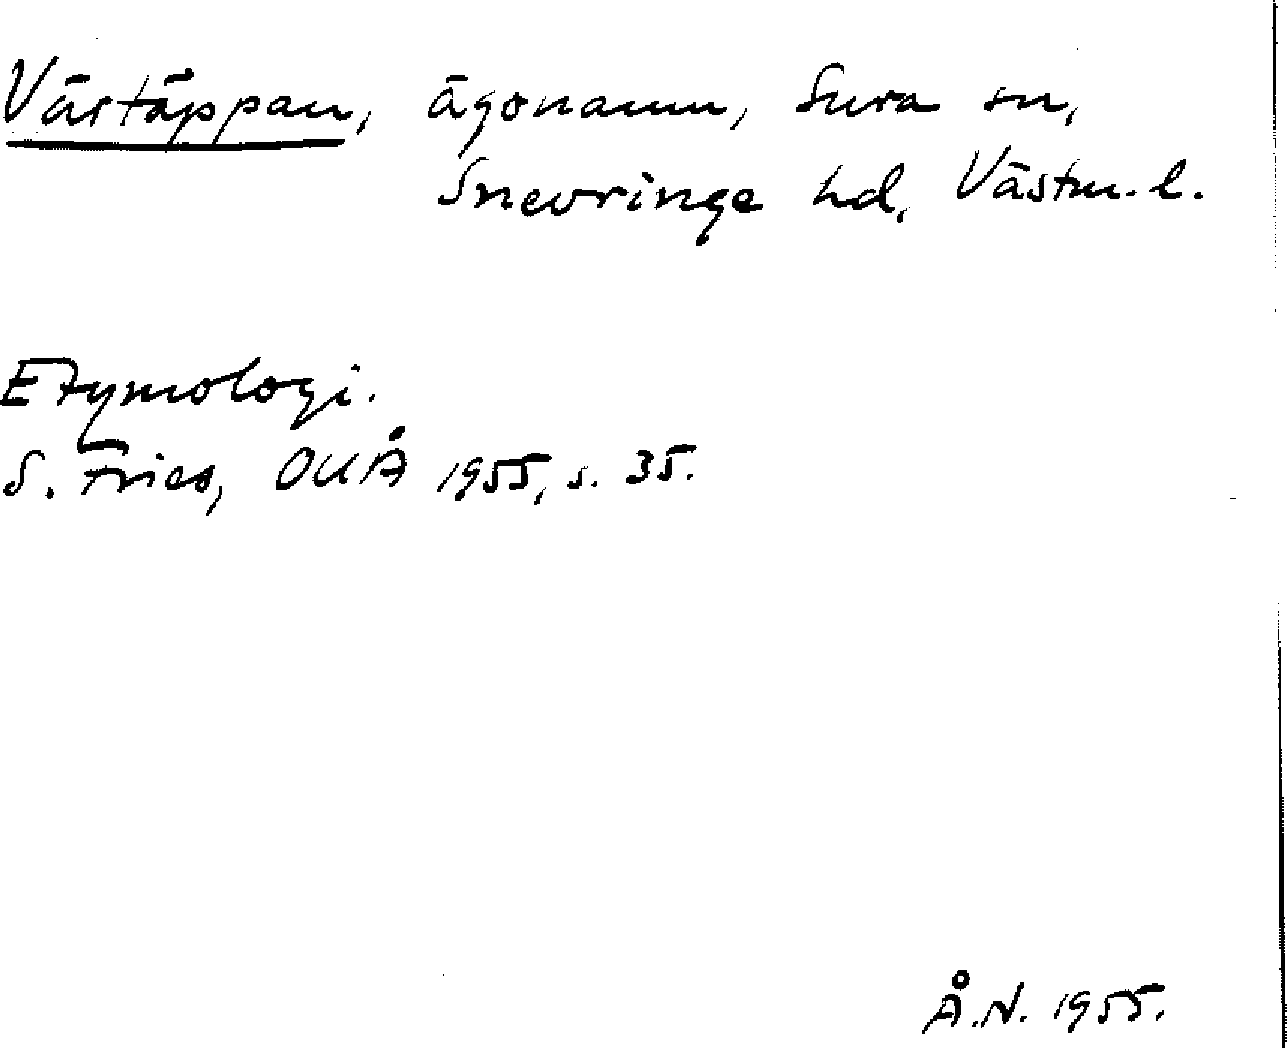 Västäppan, ägonamn, Sura sn,
Snevringe hd, Västm. l.
Etymologi.
S. Fries, OUÅ 1955, s. 35.
Å.N. 1955.